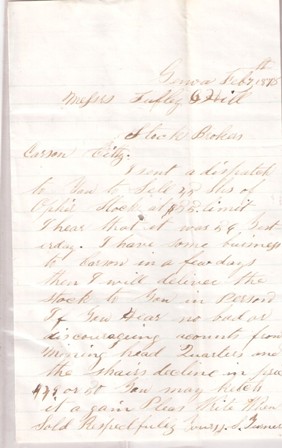 Genoa Feb 7th 1875
Messrs Hill
Stock Brokers
Carson Citty.
I sent a dispatch
to You to Sele Shs of
Ophir Stock at limit
I hear that it was yest
erday. I have some business
to Carson in a few days
then I will deliver the
stock to You in Person
If You Hear no bad or
discouraging acounts from
Mining head Quarters and
the shairs decline in
or so You may
it again Pleas Write When
Sold Respectfully Yours